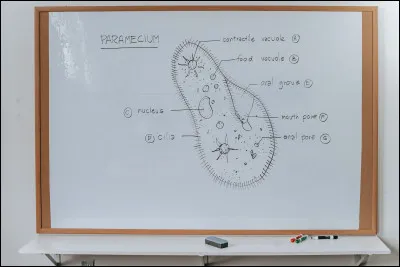 PARAMECIUM
contractile vacuole
food vacuole
oral groove
nucleus
mouth pore
cilia
anal pore